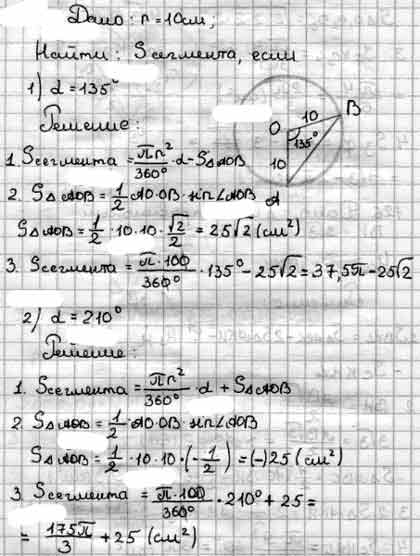 Дано: r = 10см;
Найти: Sсегмента, если
1) d = 135°
Решение:
O
10
B
135°
10
A
1. Sсегмента = πr²/360° · d - S△AOB
2. S△AOB = 1/2 AO·OB·sin∠AOB
S△AOB = 1/2 · 10 · 10 · √2/2 = 25√2 (см²)
3. Sсегмента = π·100/360° · 135° - 25√2 = 37,5π - 25√2
2) d = 210°
Решение:
1. Sсегмента = πr²/360° · d + S△AOB
2. S△AOB = 1/2 AO·OB·sin∠AOB
S△AOB = 1/2 · 10 · 10 · (-1/2) = (-)25 (см²)
3. Sсегмента = π·100/360° · 210° + 25 =
= 175π/3 + 25 (см²)